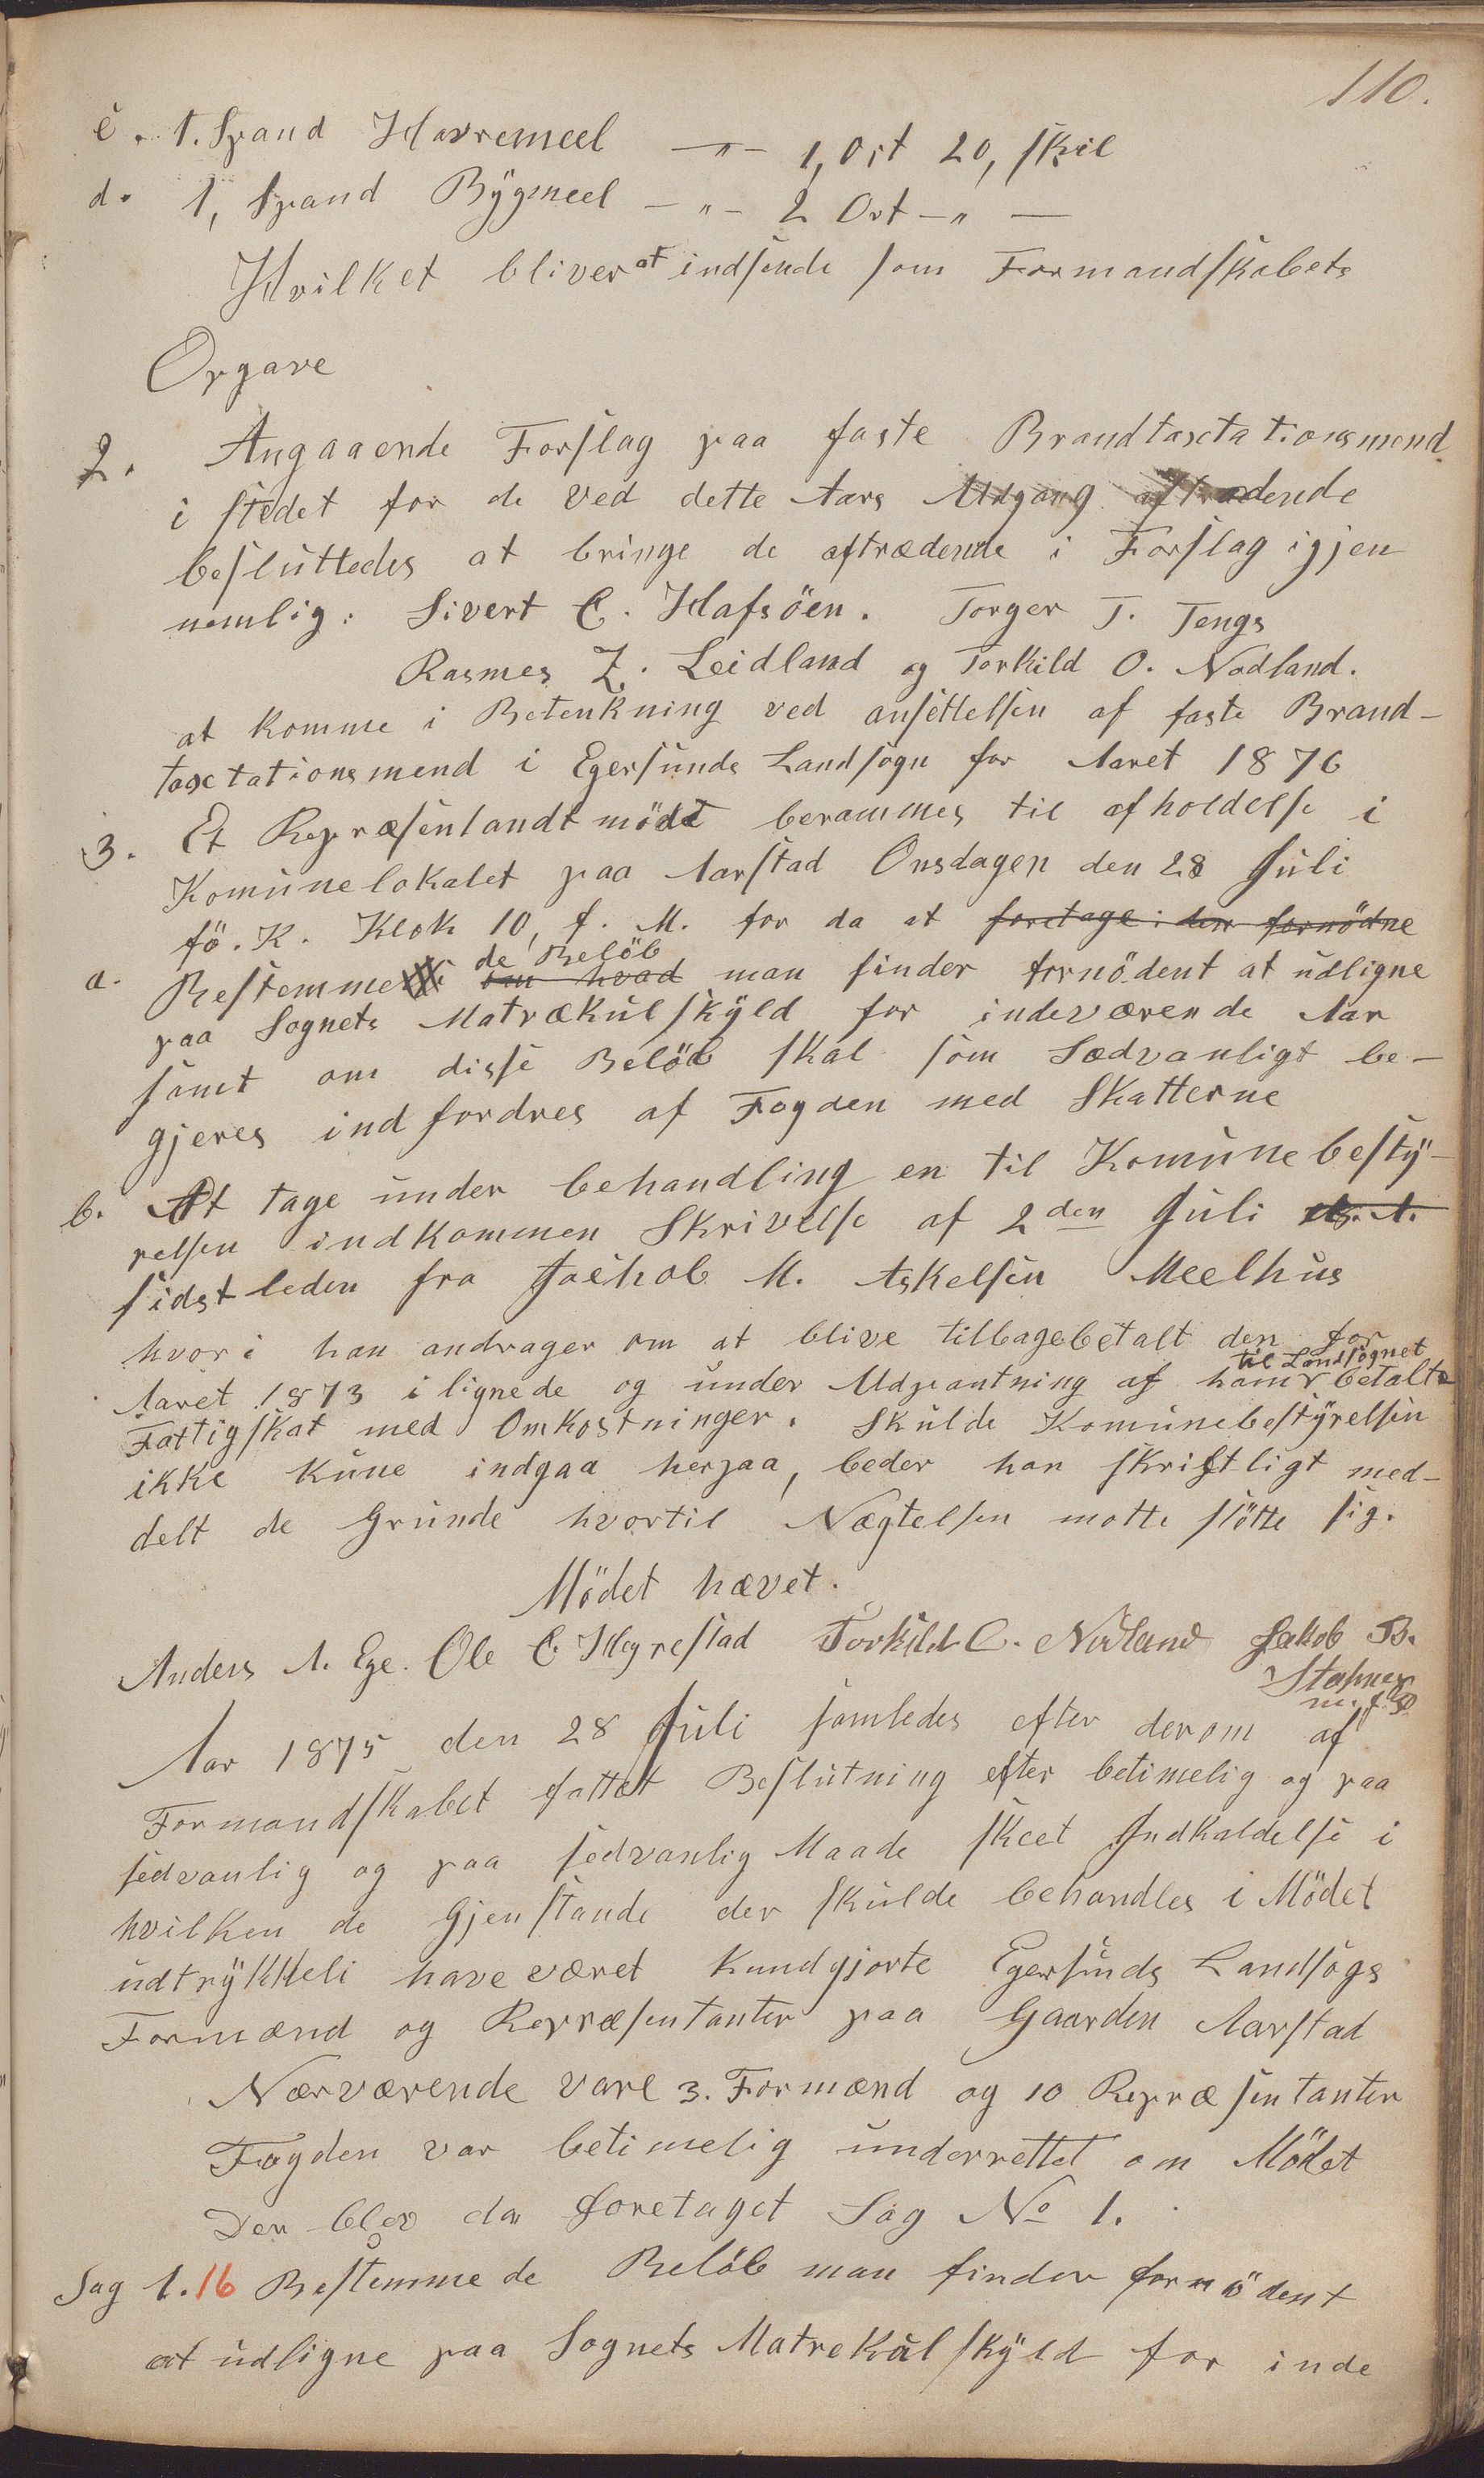 110.
c. 1. Spand Havremeel —"— 1, Ort 20, skil
d. 1, Spand Bÿgmeel —"— 2 Ort —"—
Hvilket bliver at indsende som Formandskabets
Opgave
2. Angaaende Forslag paa faste Brandtaxtationsmend
i stedet for de ved dette Aars Udgang aftrædende
besluttedes at bringe de aftrædende i Forslag igjen
nemlig: Sivert C. Hafsöen. Torger T. Tengs
Rasmes Z. Leidland og Torkild O. Nodland.
at komme i Betenkning ved ansettelsen af faste Brand-
taxtationsmend i Egersunds Landsogn for Aaret 1876
3. Et Repræsentandtmödet berammes til afholdelse i
Komunelokalet paa Aarstad Onsdagen den 28 Juli
fö. K. Klok 10, f. M. for da at foretage: den fornödne
de Belöb
a. Bestemme om hvad man finder fornödent at udligne
paa Sognets Matrækulskÿld for indeværende Aar
samt om disse Belöb skal som Sædvanligt be-
gjeres indfordres af Fogden med Skatterne
b. At tage under behandling en til Komunebestÿ-
relsen indkommen Skrivelse af 2den Juli ds. A.
sidstleden fra Jaehob M. Askelsen Meelhus
hvori han andrager om at blive tilbagebetalt den for
til Landsognet
Aaret 1873 ilignede og under Udpantning af ham betalte
Fattigskat med Omkostninger. Skulde Komunebestÿrelsen
ikke kune indgaa herpaa, beder han skriftligt med-
delt de Grunde hvortil Nægtelsen motte stötte sig.
Mödet hævet.
Anders A. Ege. Ole C. Hegrestad Torkild O. Nodland Jakob B.
Stapnes
m. f. P
Aar 1875 den 28 Juli samledes efter derom af
Formandskabet fattet Beslutning efter betimelig og paa
sedvanlig og paa sedvanlig Maade skeet Indkaldelse i
hvilken de Gjenstande der skulde behandles i Mödet
udtrÿkkeli have været kundgjorte Egersunds Landsogs
Formænd og Repræsentanter paa Gaarden Aarstad
Nærværende vare 3. Formænd og 10 Repræsentanter
Fogden var betimelig underrettet om Mödet
Der blev da foretaget Sag No 1.
Sag 1. 16 Bestemme de Belöb man finder fornödent
at udligne paa Sognets Matrekulskÿld for inde